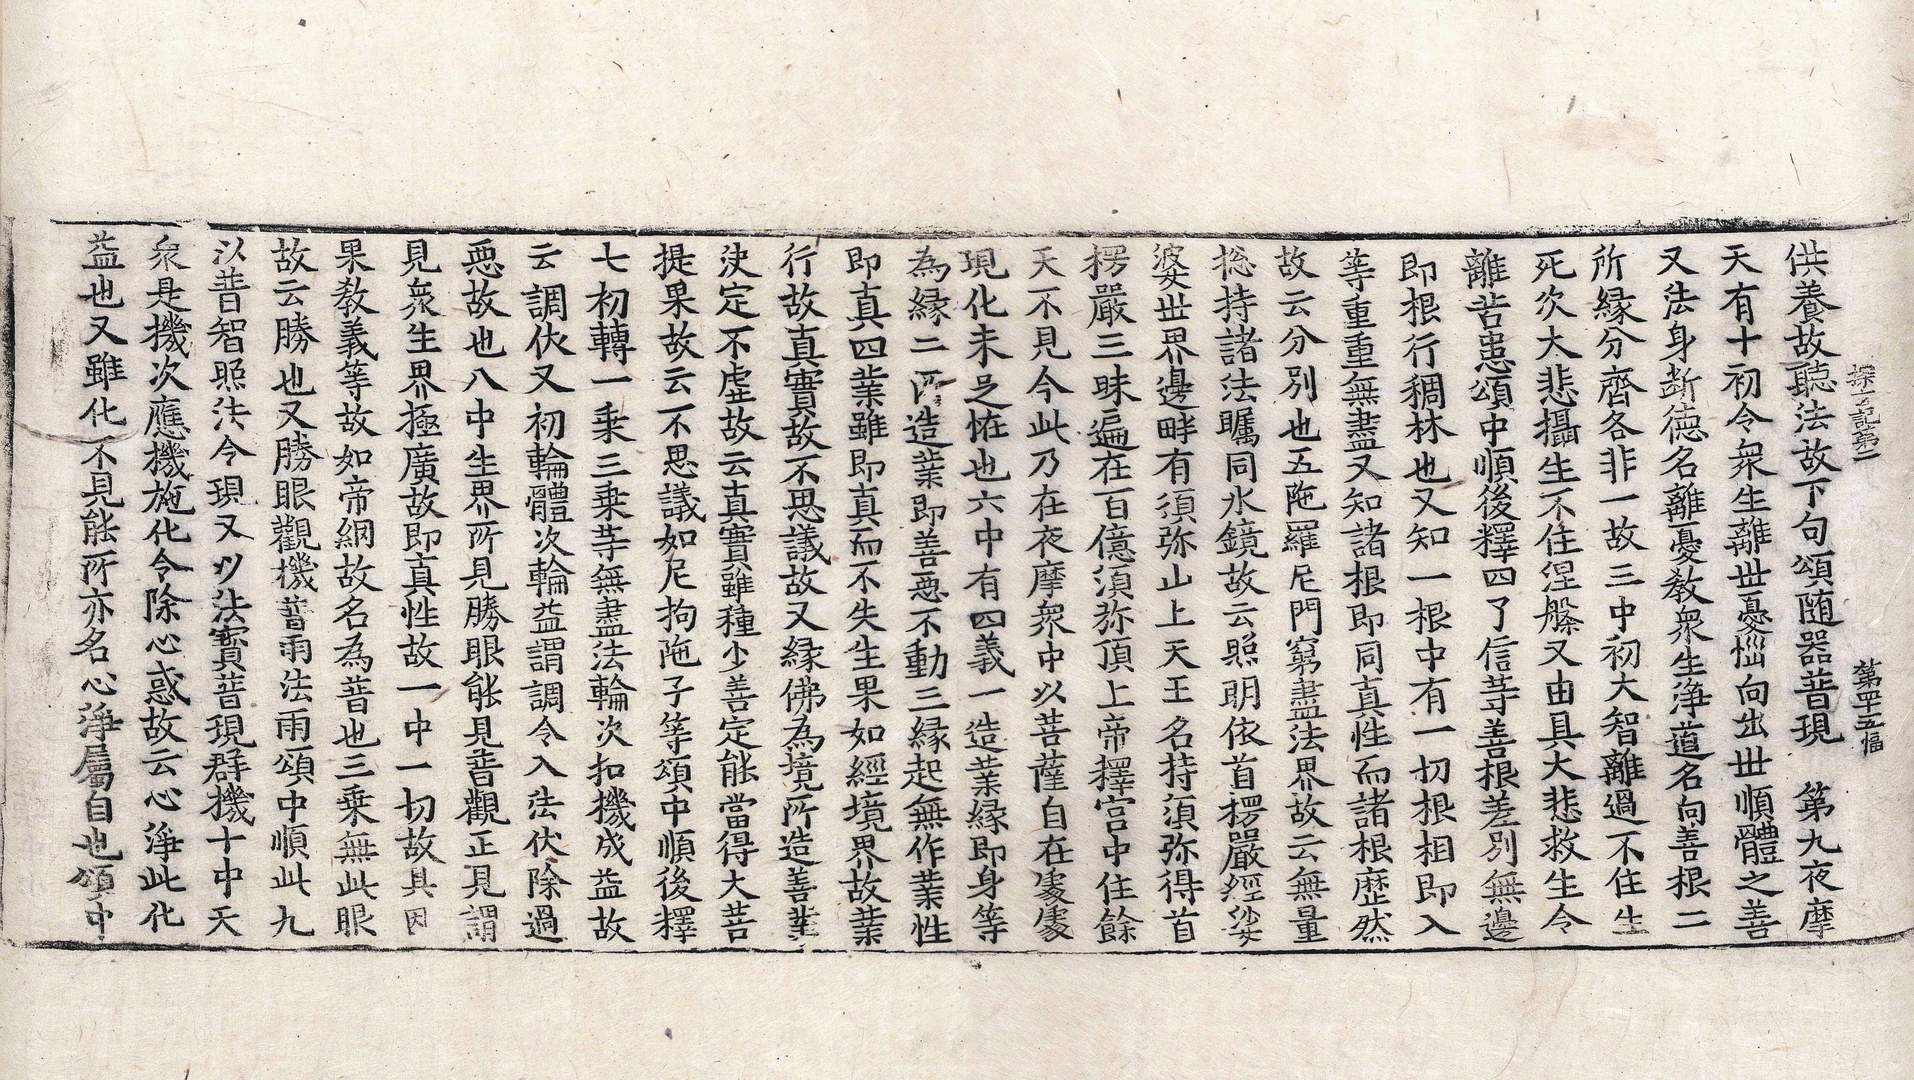 探玄記第二　第四十五幅
供養故聽法故下句頌隨器普現　第九夜摩
天有十初令衆生離世憂惱向出世順體之善
又法身断德名離憂教衆生淨道名向善根二
所縁分齊各非一故三中初大智離過不住生
死次大悲攝生不住涅槃又由具大悲救生令
離苦患頌中順後釋四了信等善根差別無邊
即根行稠林也又知一根中有一切根相即入
等重重無盡又知諸根即同真性而諸根歷然
故云分別也五陁羅尼門窮盡法界故云無量
捴持諸法矚同水鏡故云照明依首楞嚴經娑
婆世界邊畔有須弥山上天王名持須弥得首
楞嚴三昧遍在百億須弥頂上帝釋宮中住餘
天不見今此乃在夜摩衆中以菩薩自在處處
現化未足恠也六中有四義一造業縁即身等
為縁二所造業即善惡不動三縁起無作業性
即真四業雖即真而不失生果如經境界故業
行故真實故不思議故又縁佛為境所造善業
決定不虛故云真實雖種少善定能當得大菩
提果故云不思議如尼拘陁子等頌中順後釋
七初轉一乗三乗等無盡法輪次扣機成益故
云調伏又初輪體次輪益謂調令入法伏除過
惡故也八中生界所見勝眼能見普觀正見謂
見衆生界極廣故即真性故一中一切故具因
果教義等故如帝網故名為普也三乗無此眼
故云勝也又勝眼觀機普雨法雨頌中順此九
以普智照法令現又以法寶普現群機十中天
衆是機次應機施化令除心惑故云心淨此化
益也又雖化不見能所亦名心淨屬自也頌中